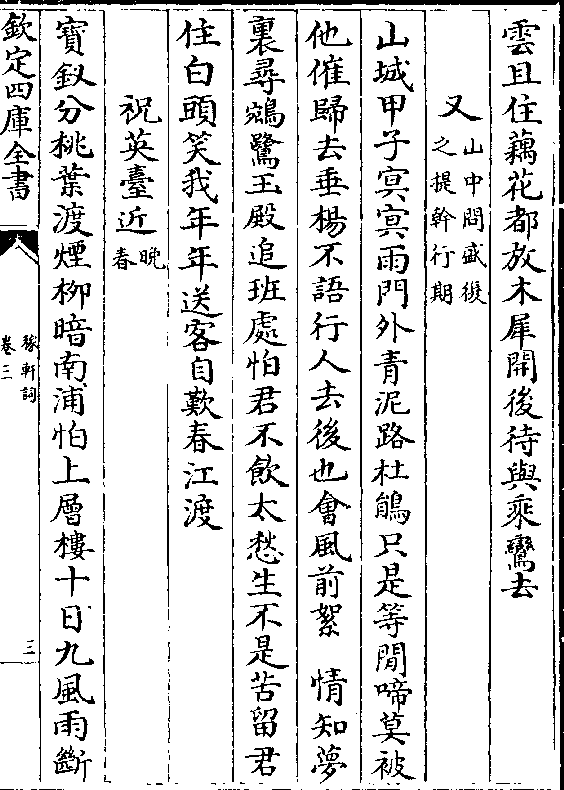 雲且住藕花都放木犀開後待與乘鸞去
又山中問盛復之提幹行期
山城甲子冥冥雨門外青泥路杜鵑只是等閒啼莫被
他催歸去垂楊不語行人去後也會風前絮　情知夢
裏尋鵷鷺玉殿追班處怕君不飲太愁生不是苦留君
住白頭笑我年年送客自歎春江渡
祝英臺近晚春
寶釵分桃葉渡煙柳暗南浦怕上層樓十日九風雨斷
欽定四庫全書
稼軒詞
卷三
三